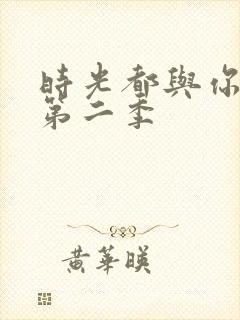 時光都與你
第二季
黃華暎